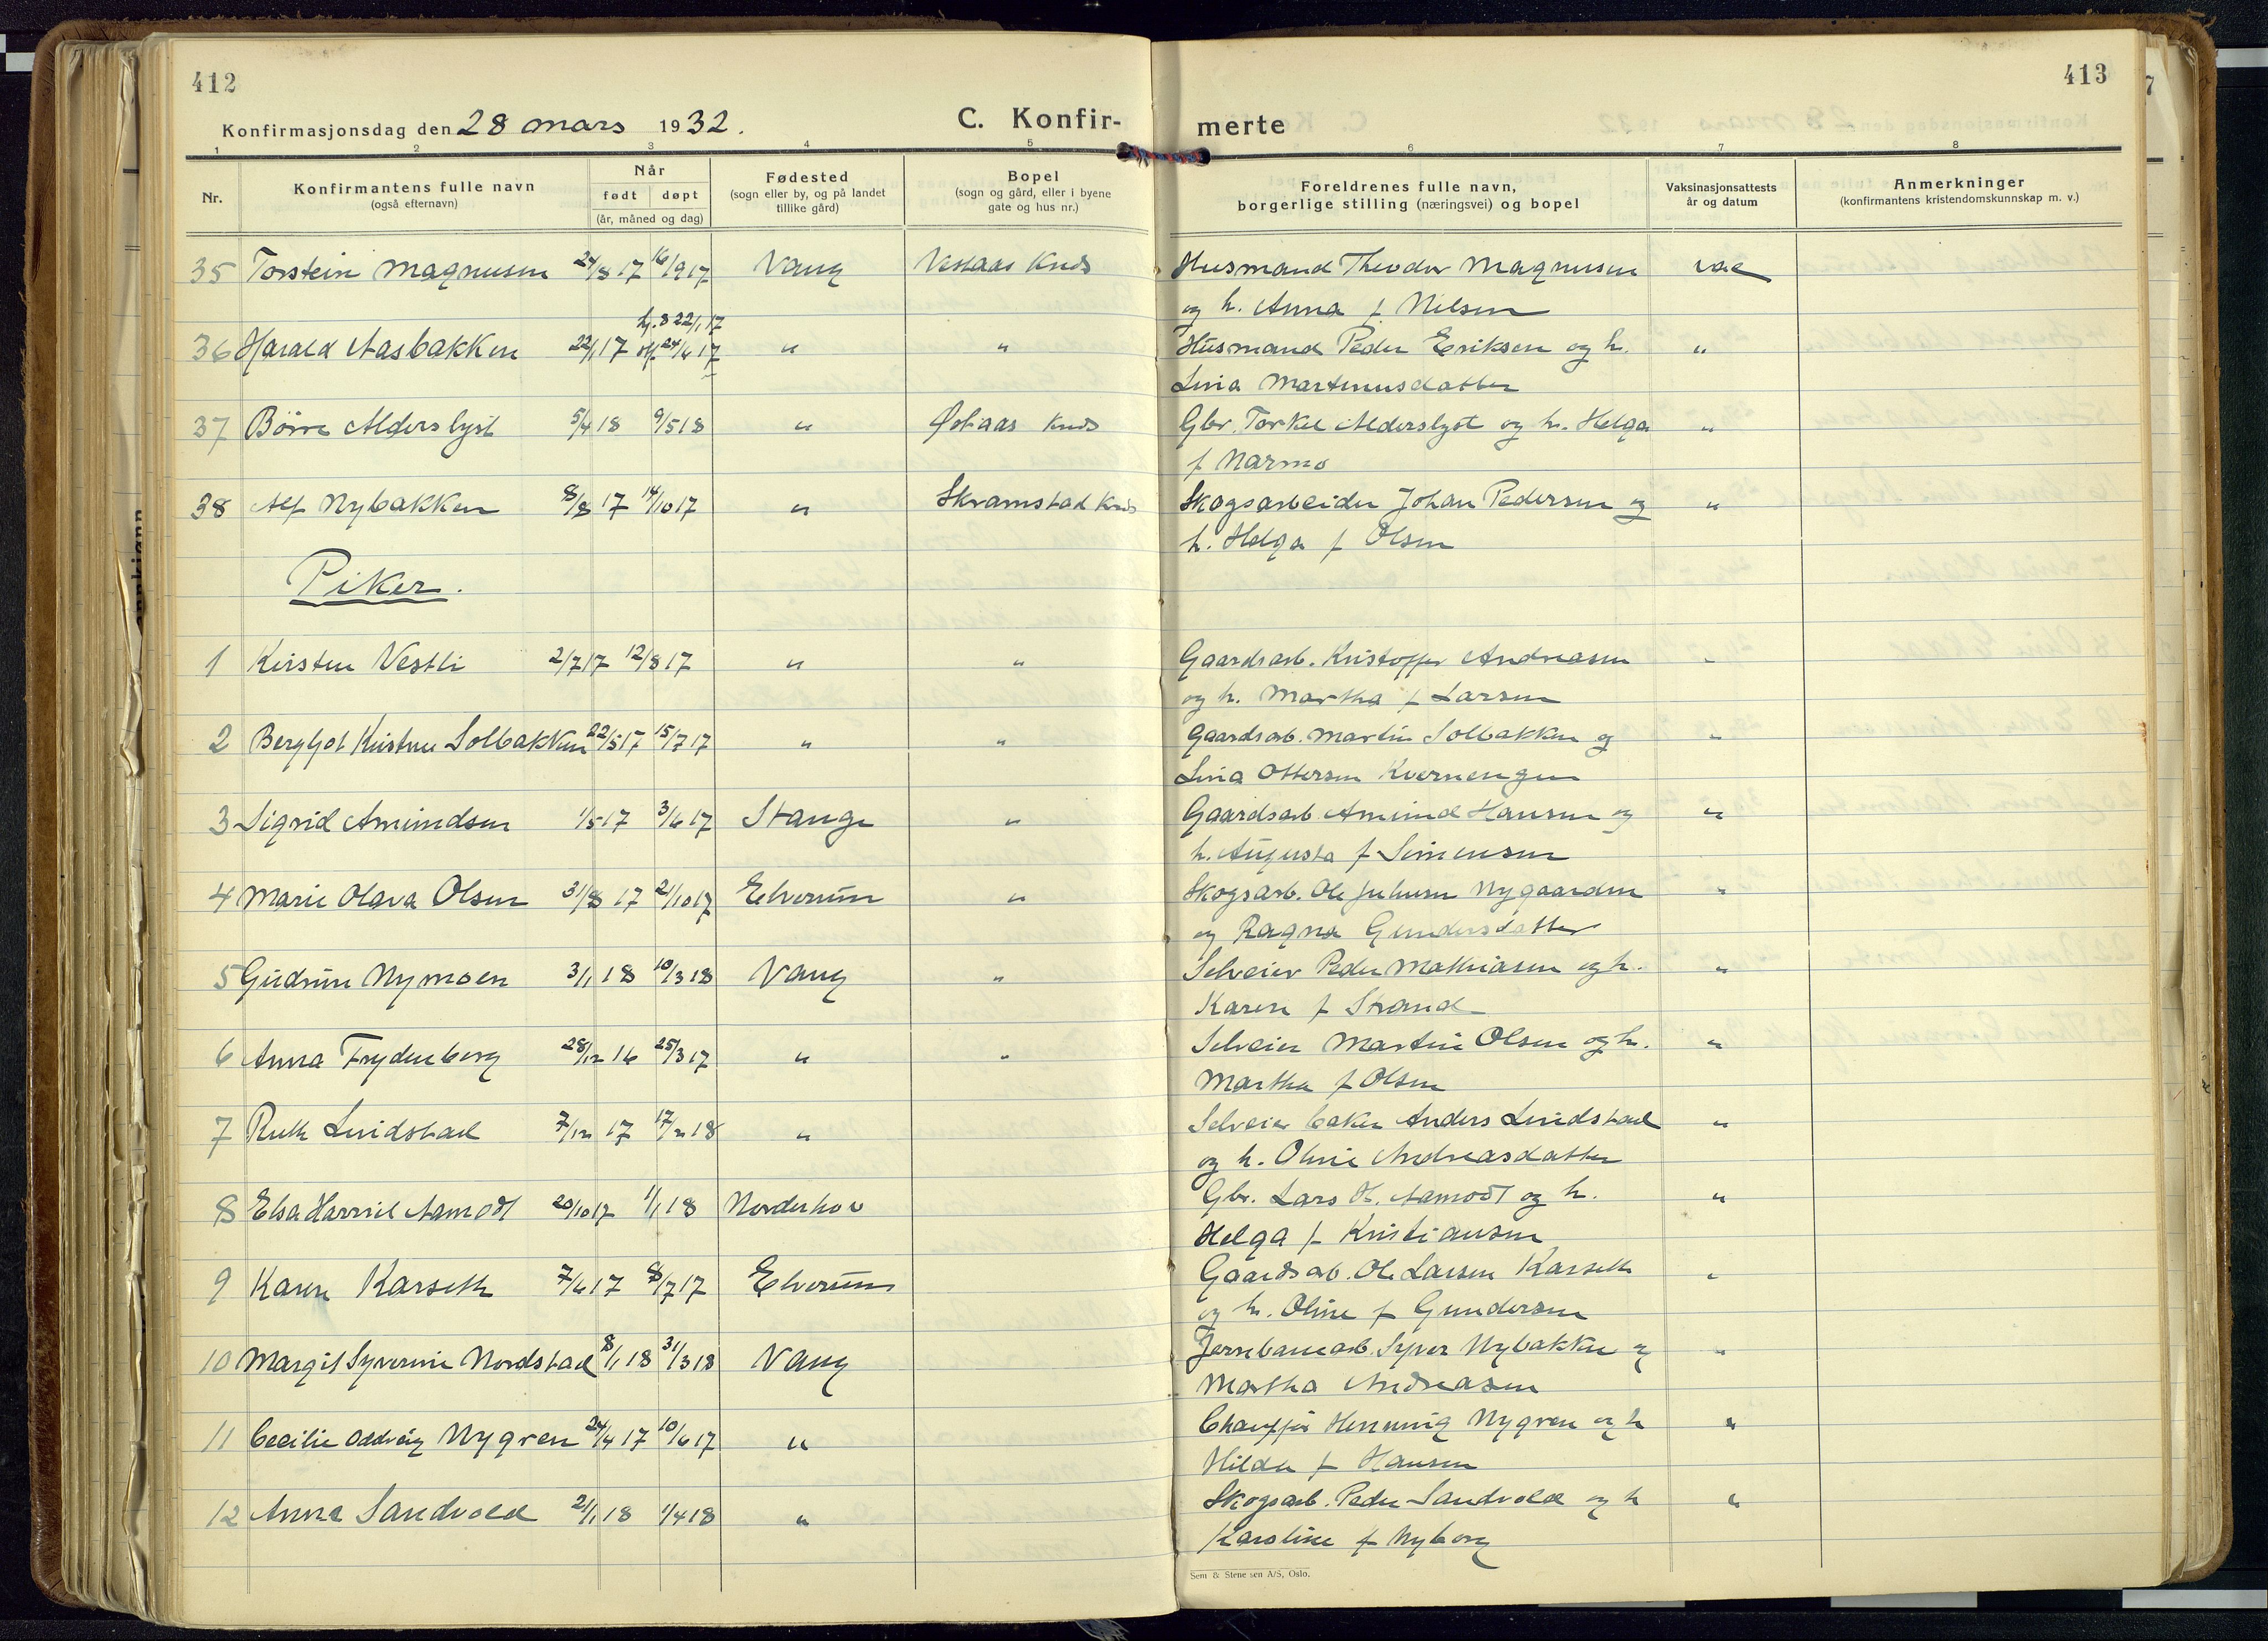 412
413
Konfirmasjonsdag den 28 mars 1932.
C. Konfir-
merte
1 2 3 4 5 6 7 8
Nr.
Konfirmantens fulle navn
(også efternavn)
Når
født døpt
(år, måned og dag)
Fødested
(sogn eller by, og på landet
tillike gård)
Bopel
(sogn og gård, eller i byene
gate og hus nr.)
Foreldrenes fulle navn,
borgerlige stilling (næringsvei) og bopel
Vaksinasjonsattests
år og datum
Anmerkninger
(konfirmantens kristendomskunnskap m. v.)
35 Torstein Magnusen 24/8 17 16/9 17 Vang Vestaas Kreds Husmand Theodor Magnusen vac
og h. Anna f Nilsen
hj.d 22/1 17
36 Harald Aasbakken 22/1 17 24/6 17 " " Husmand Peder Eriksen og h. "
Lina Martinusdatter
37 Børre Alderslyst 5/4 18 9/5 18 " Østaas Kreds Gbr. Torkel Alderslyst og h. Helga "
f Narmo
38 Alf Nybakken 8/8 17 14/10 17 " Skramstad Kreds Skogsarbeider Johan Pedersen og "
h. Helga f Olsen
Piker.
1 Kirsten Vestli 2/7 17 12/8 17 " " Gaardsarb. Kristoffer Andreasen "
og h. Martha f Larsen
2 Bergljot Kirstine Solbakken 22/5 17 15/7 17 " " Gaardsarb. Martin Solbakken og "
Lina Ottersen Kvernengen
3 Sigrid Amundsen 1/5 17 3/6 17 Stange " Gaardsarb. Amund Hansen og "
h. Augusta f Simensen
4 Marie Olava Olsen 31/8 17 21/10 17 Elverum " Skogsarb. Ole Juliusen Nygaarden "
og Ragna Gundersdatter
5 Gudrun Nymoen 3/1 18 10/3 18 Vang " Selveier Peder Mathiasen og h. "
Karen f Strand
6 Anna Frydenberg 28/12 16 25/3 17 " " Selveier Martin Olsen og h. "
Martha f Olsen
7 Ruth Lindstad 7/12 17 17/2 18 " Selveier baker Anders Lindstad "
og h. Oline Andreasdatter
8 Elsa Harriet Aamodt 20/10 17 1/1 18 Norderhov Gbr. Lars H. Aamodt og h. "
Helga f Kristiansen
9 Karen Karseth 7/6 17 8/7 17 Elverum Gaardsarb. Ole Larsen Karseth "
og h. Oline f Gundersen
10 Margit Syverine Nordstad 8/1 18 31/3 18 Vang Jernbanearb. Syver Nybakken og "
Martha Andreasen
11 Cecilie Oddveig Nygren 24/4 17 10/6 17 " Chauffør Henning Nygren og h "
Hilda f Hansen
12 Anna Sandvold 21/1 18 1/4 18 " Skogsarb. Peder Sandvold og h "
Karoline f Nyborg
Sem & Stenersen A/S, Oslo.